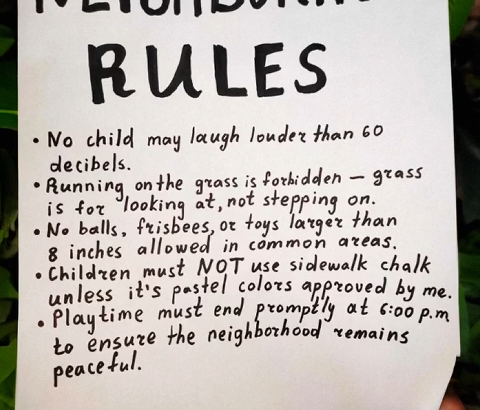 NEIGHBORHOOD
RULES
• No child may laugh louder than 60
decibels.
• Running on the grass is forbidden — grass
is for looking at, not stepping on.
• No balls, frisbees, or toys larger than
8 inches allowed in common areas.
• Children must NOT use sidewalk chalk
unless it's pastel colors approved by me.
• Playtime must end promptly at 6:00 p.m
to ensure the neighborhood remains
peaceful.